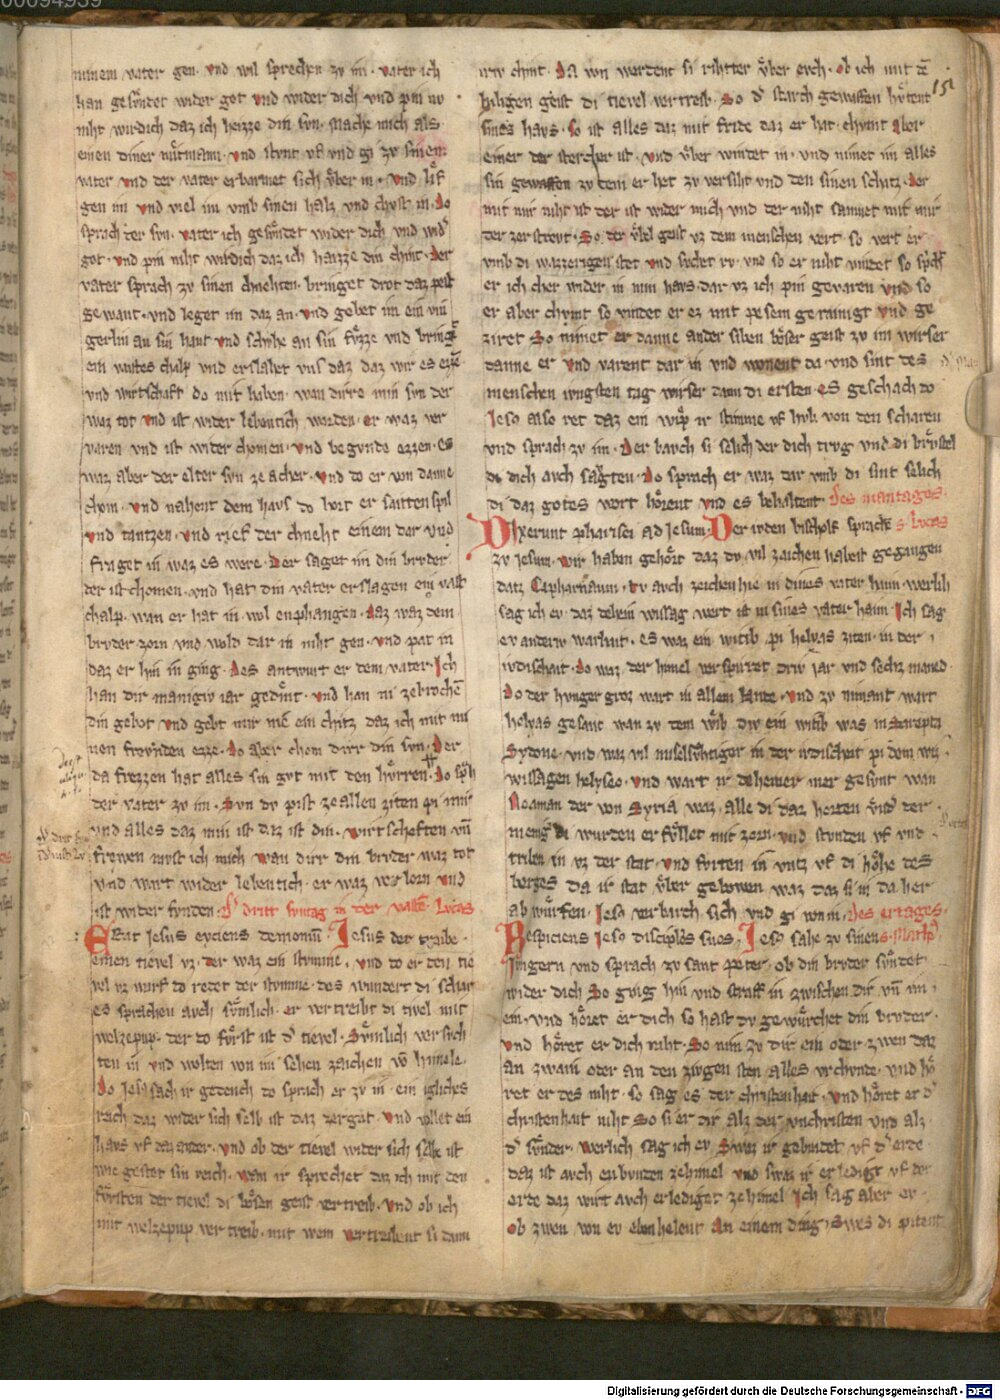 00094939
minem vater gen. vnd wil sprechen zv im. vater ich
han gesvndet wider got vnd wider dich vnd pin nv
niht wirdich daz ich heizze din svn. mache mich als
einen diner mvtmann. vnd stvnt vf vnd gi zv sinem
vater vnd der vater erbarmet sich vͤber in. vnd lif
gen im vnd viel im vmb sinen halz vnd chvst in. do
sprach der svn. vater ich gesvndet wider dich vnd wid
got. vnd pin niht wirdich daz ich haizze din chint. der
vater sprach zv sinen chnehten. bringet drot daz pest
gewant. vnd leget im daz an. vnd gebet im ein vin
gerlin an sin hant vnd schvhe an sin fvzze vnd bring
ein vaites chalp vnd erslahet vns daz daz wir es ezze
vnd wirtschaft do mit haben. wan dirre min svn der
waz tot vnd ist wider lebentich worden. er waz ver
varen vnd ist wider chomen. vnd begvnde ezzen. es
waz aber der elter svn ze acher. vnd do er von danne
chom. vnd nahent dem havs do hort er saitten spil
vnd tantzen. vnd rief der chneht einem dar vnd
fraget in waz es were. der saget im din brvder
der ist chomen. vnd hat din vater erslagen ein vaist
chalp. wan er hat in wol enphangen. daz waz dem
brvder zorn vnd wold dar in niht gen. vnd pat in
daz er hin in ging. des antwurt er dem vater. ich
han dir manigiv iar gedint. vnd han ni zebroche
din gebot vnd gebt mir nie ein chitz daz ich mit mi
nen frevnden ezze. do aber chom dirr din svn. der
da frezzen hat alles sin gvt mit den hvrren. do sph
der vater zv im. svn dv pist ze allen ziten pi mir
vnd alles daz min ist daz ist din. wirtscheften vn
frewen mvst ich mich wan dirr din brvder waz tot
vnd wart wider lebentich. er waz verlorn vnd
ist wider fvnden. d dritt svntag in der vasten. Lvcas
Erat Jesus eyciens demonium. Jesus der traibe
einen tievel vz. der waz ein stvmme. vnd do er den tie
vel vz warf do redet der stvmme. des wundert di schar
es sprachen avch svmlich. er vertreibt di tivel mit
welzepup. der do fvrst ist d tievel. Svmlich versvch
ten in vnd wolten von im sehen zaichen vo himele.
do Jesus sach ir gedench do sprach er zv in. ein igliches
reich daz wider sich selb ist daz zergat. vnd vellet ein
havs vf daz ander. vnd ob der tievel wider sich selbe ist
wie gestet sin reich. wan ir sprechet daz ich mit den
fvrsten der tievel di bosen geist vertreib. vnd ob ich
mit welzepup vertreib. mit wem vertreibent si dann
151
iriv chint. da von werdent si rihtter vber evch. ob ich mit de
heiligen geist di tievel vertreib. So d starch gewaffen hvtent
sines havs. so ist alles daz mit fride daz er hat. chvmt aber
einer der stercher ist. vnd vber windet in. vnd nimet im alles
sin gewaffen zv dem er het zv versiht vnd den sinen schatz. der
mit mir niht ist der ist wider mich vnd der niht samnet mit mir
der zerstrevt. So der vbel geist vz dem menschen vert. so vert er
vmb di wazzerigen stet vnd svchet rv. vnd so er niht vindet so sprich
er ich cher wider in min havs dar vz ich pin gevaren vnd so
er aber chvmt so vindet er ez mit pesem gerainigt vnd ge
ziret. So nimet er danne ander siben boser geist zv im wirser
danne er vnd varent dar in vnd wonent da. vnd sint des
menschen ivngsten tag wirser dann di ersten. es geschach do
Jesus also ret daz ein wip ir stimme vf hvb von den scharen
vnd sprach zv im. der bavch si selich der dich trvg vnd di brvstel
di dich avch saugten. do sprach er waz dar vmb di sint selich
di daz gotes wort horent vnd es behaltent. Des mantages.
Dixerunt pharisei ad Jesum. Der ivden bischolf sprach s Lvcas
zv Jesum. wir haben gehort daz dv vil zaichen habest gegangen
datz Capharnaum. tv avch zeichen hie in dines vater haim. werlich
sag ich ev. daz dehein wissag wert ist in sines vater haim. Ich sag
ev anderiv warhait. es waz ein witib pi helyas ziten. in der
ivdischait. do waz der himel verspirret driv iar vnd sechz maned.
do der hvnger groz wart in allem lande. vnd zv nimant wart
helyas gesant wan zv dem wib div ein witib was in Sarepta
Sydone. vnd waz vil miselsvhtiger in der ivdischait pi dem wis
wissagen helyseo. vnd wart ir deheiner mer gesvnt wan
Naaman der von Syria waz. alle di daz horten vnd der
menig di wurden erfvllet mit zorn. vnd stvnden vf vnd
triben in vz der stat. vnd fvrten in vntz vf di hohe des
berges da ir stat vber gebowen waz daz si in da her
ab wurfen. Jesus verbarch sich vnd gi von in. des ertages.
Respiciens Jesus discipulos suos. Jesus sahe zv sinen s. Math
Jvngern vnd sprach zv sant peter. ob din brvder svndet
wider dich So ging hin vnd straff in zwischen dir vn im
ein. vnd horet er dich so hast dv gewurchet din brvder.
vnd horet er dich niht. So nim zv dir ein oder zwen daz
an zwain oder an den zivgen sten alles vrchvnde. vnd ho
ret er des niht. so sag es der christenhait. vnd horet er d
christenhait niht So si er dir alz der vnchristen vnd alz
d svnder. werlich sag ich ev Swaz ir gebindet vf d erde
daz ist avch enbvnden ze himel vnd swaz ir erledigt vf der
erde daz wirt avch erlediget ze himel Ich sag aber ev
ob zwen von ev ebenhelent an einem ding. Swes di pitent
Digitalisierung gefördert durch die Deutsche Forschungsgemeinschaft - DFG